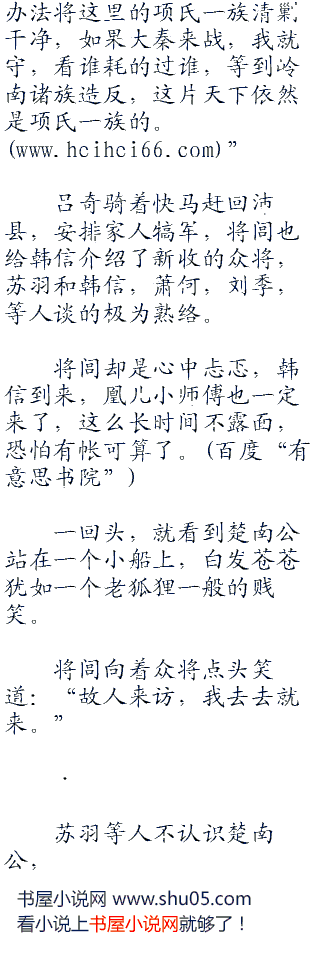 办法将这里的项氏一族清剿
干净，如果大秦来战，我就
守，看谁耗的过谁，等到岭
南诸族造反，这片天下依然
是项氏一族的。
(www.hcihci66.com)”
吕奇骑着快马赶回沛
县，安排家人犒军，将闾也
给韩信介绍了新收的众将，
苏羽和韩信，萧何，刘季，
等人谈的极为熟络。
将闾却是心中忐忑，韩
信到来，凰儿小师傅也一定
来了，这么长时间不露面，
恐怕有帐可算了。(百度“有
意思书院”)
一回头，就看到楚南公
站在一个小船上，白发苍苍
犹如一个老狐狸一般的贱
笑。
将闾向着众将点头笑
道：“故人来访，我去去就
来。”
.
苏羽等人不认识楚南
公，
书屋小说网 www.shu05.com
看小说上书屋小说网就够了！